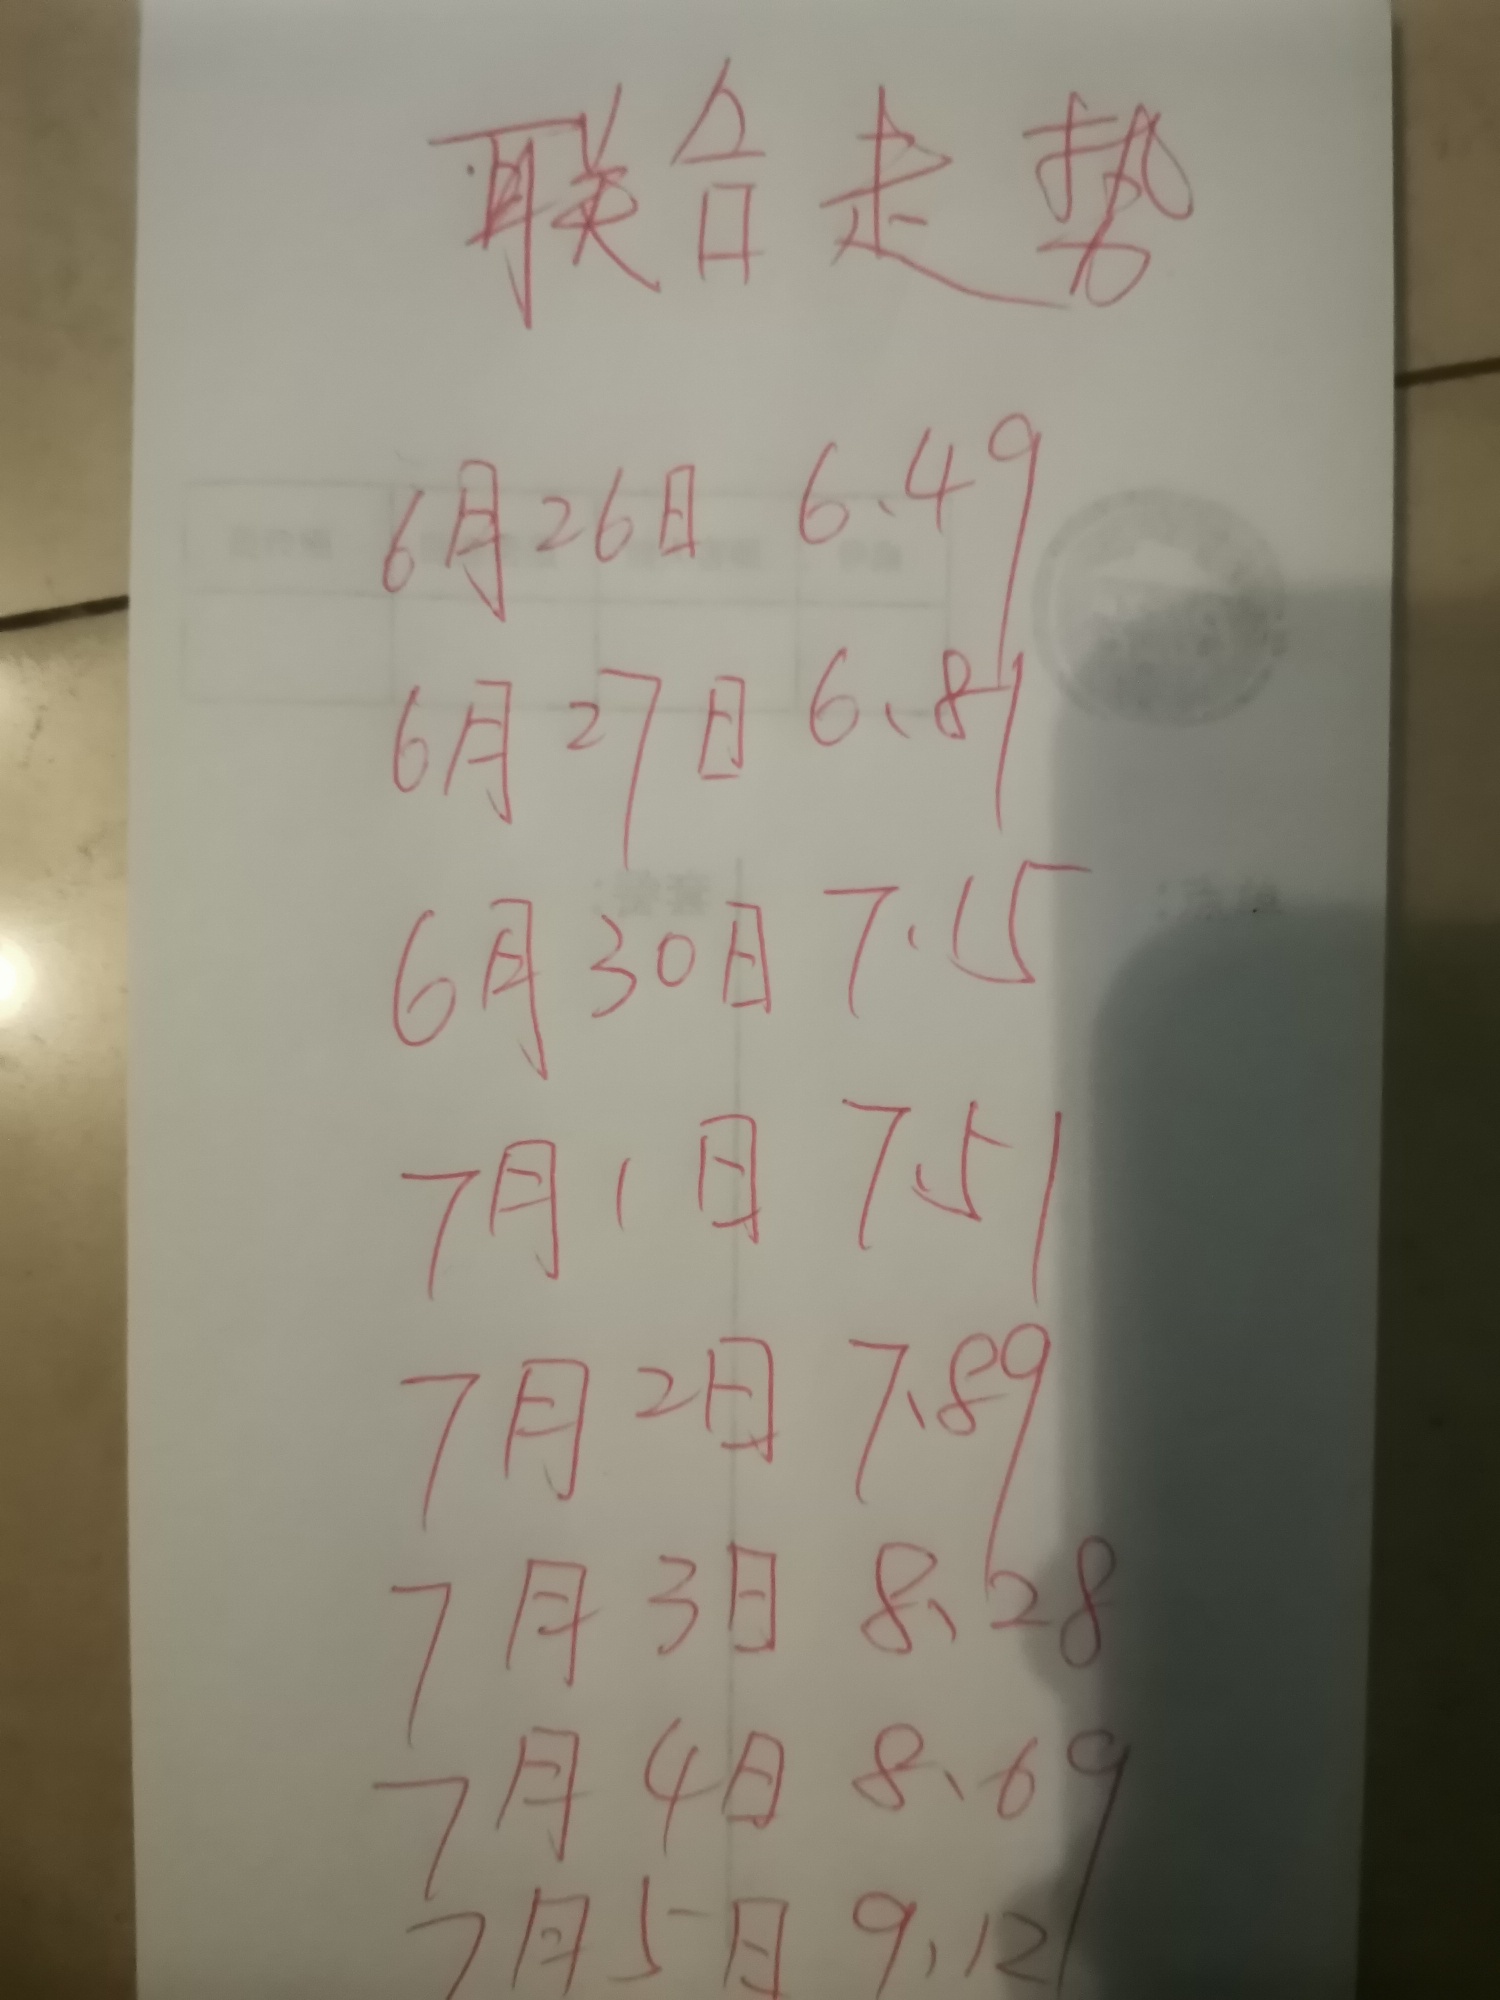 联合走势
6月26日 6.49
6月27日 6.81
6月30日 7.15
7月1日 7.51
7月2日 7.89
7月3日 8.28
7月4日 8.69
7月5日 9.12